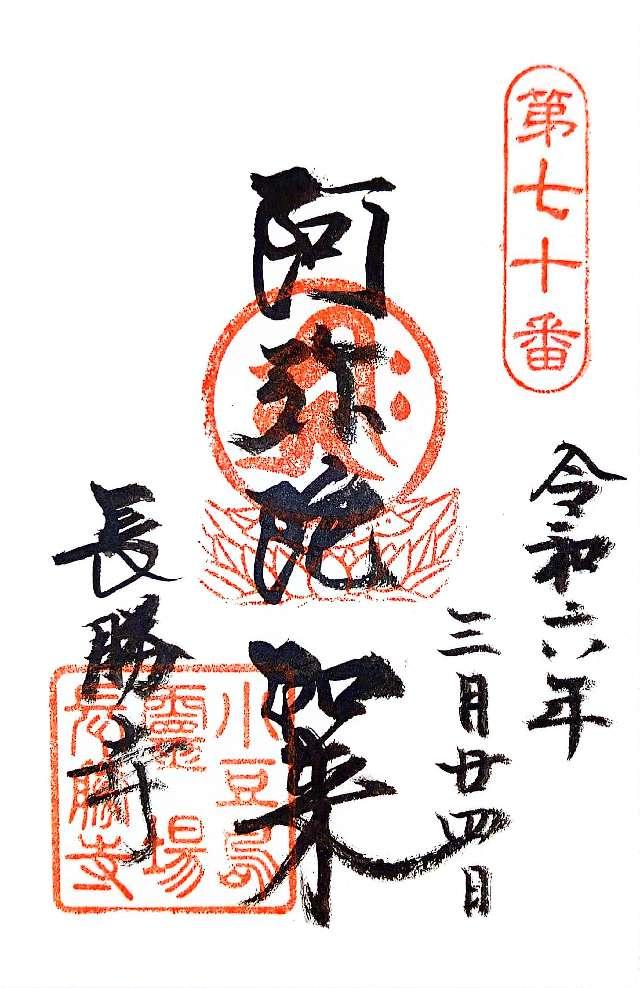 第七十番
令和六年
三月廿四日
阿弥陀如来
長勝寺
小豆島
霊場
長勝寺